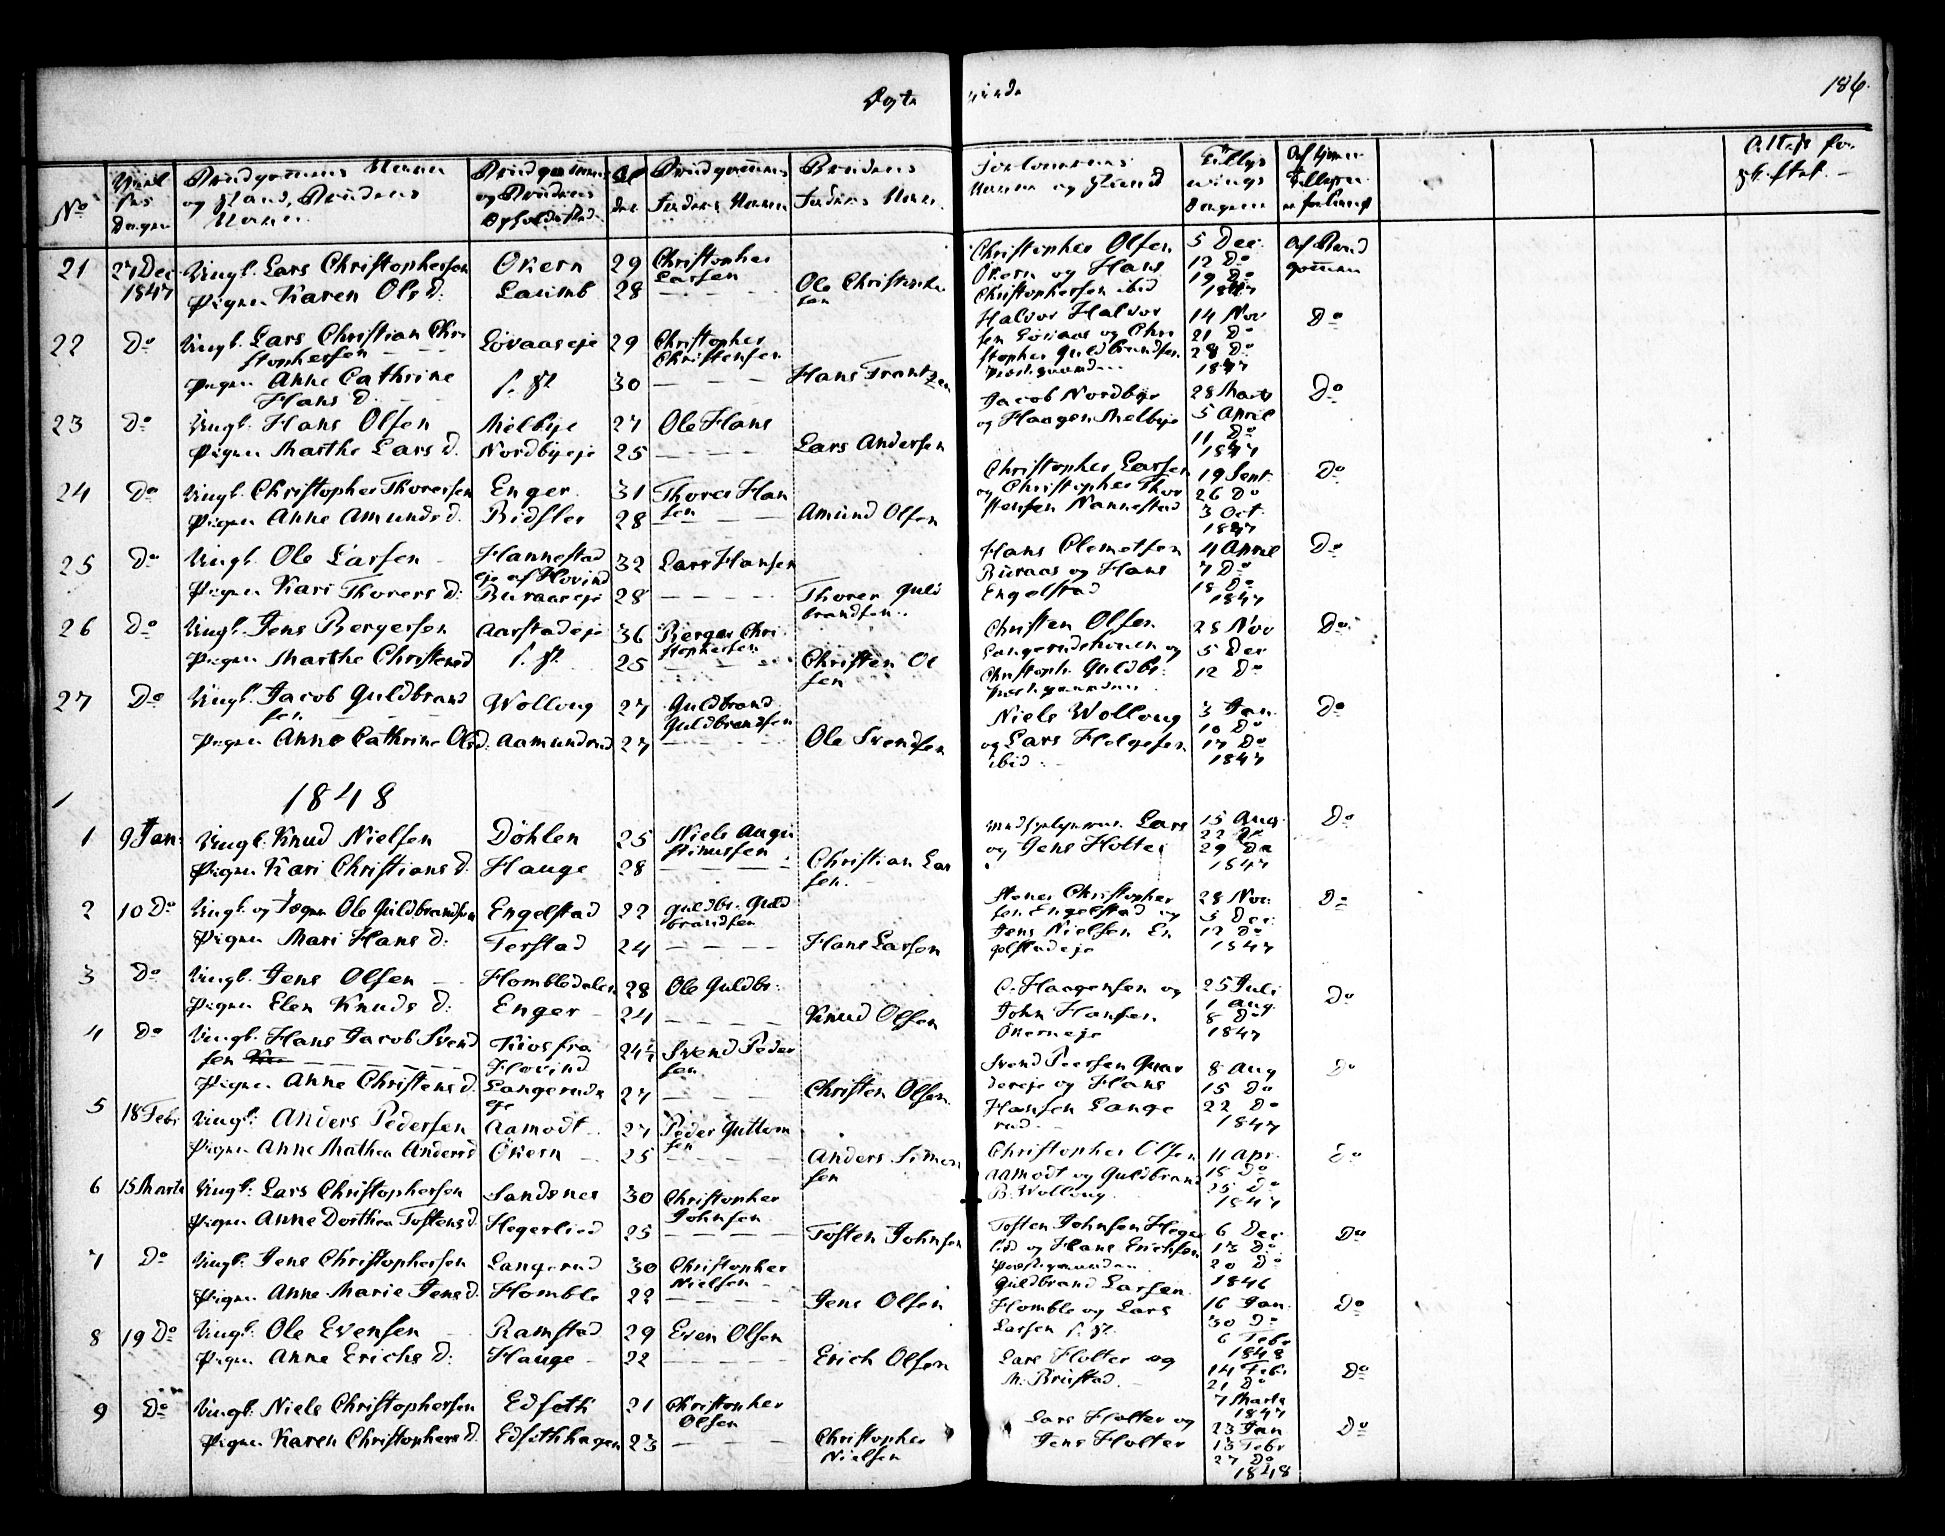 186.
No
Dagen
og Stand, Brudens
Navn
og Brudens
Brudgommens
Faders Navn
Brudens
Faders Navn
Forlovernes
Navne og Stand
wings
Dagene
21 27 Dec Ungk. Lars Christophersen Økern 29 Christopher Larsen
1847 Pigen Karen Ols D. Lauimb 28 — — — Ole Christophersen
Christopher Olsen Økern og Hans Christophersen ibid
5 Dec. 12 Do 19 Do 1847
Af Brudgommen
22 Do Ungk. Lars Christian Christophersen — — Lövaaseje 29 Christopher Christensen
Pigen Anne Cathrine Hans D. — — s. St. 30 — — — Hans Frantzen
Halvor Halvorsen Lövaas og Christopher Guldbrandsen
14 Nov 21 Do 28 Do 1847
Do
23 Do Ungk. Hans Olsen Melbye 27 Ole Hans
Pigen Marthe Lars D. Nordbyeje 25 — — — Lars Andersen
Jacob Nordbye og Haagen Melbye
28 Marts 5 April 11 Do 1847
Do
24 Do Ungk. Christopher Thoresen Enger 31 Thores Hansen
Pigen Anne Amunds D. Bidsler 28 — — — Amund Olsen
Christopher Larsen og Christopher Thorstensen Nannestad
19 Sept. 26 Do 3 Oct. 1847
Do
25 Do Ungk. Ole Larsen Hannestad eje af Hovind 32 Lars Hansen
Pigen Kari Thorers D. Buraaseje 28 — — — Thorer Guldbrandsen
Hans Clemetsen Buraas og Hans Engelstad
4 April 7 Do 18 Do 1847
Do
26 Do Ungk. Jens Bergersen Aarstadeje 36 Berger Christophersen
Pigen Marthe Christensd s. St. 25 — — — Christen Olsen
Christen Olsen Langerudshouen og Christoph. Guldbr.
28 Nov 5 Dec 12 Do
Do
27 Do Ungk. Jacob Guldbrandsen — — Wolloug 27 Guldbrand Guldbrandsen
Pigen Anne Cathrine Olsd. Aamundrud 27 — — — Ole Svendsen
Niels Wolloug og Lars Helgesen ibid
3 Jan. 10 Do 17 Do 1847
Do
1 1848
1 9 Jan. Ungk. Knud Nielsen Döhlen 25 Niels Augustinussen
Pigen Kari Christians D. Hauge 28 — — — Christian Larsen.
Lars og Jens Holter
15 Aug. 22 Do 29 Do 1847
Do
2 10 Do Ungk. og Ole Guldbrandsen Engelstad 22 Guldbr. Guldbrandsen
Pigen Mari Hans D. Terstad 24 — — — Hans Larsen
Christophersen Engelstad og Jens Nielsen Engelstadeje
28 Nov. 5 Dec. 12 Do 1847
Do
3 Do Ungk. Jens Olsen Hombledalen 28 Ole Guldbr.
Pigen Elen Knuds D. Enger 24 — — — Knud Olsen
C. Haagensen og John Hansen Økerneje
25 Juli 1 Aug. 8 Do 1847
Do
4 Do Ungk. Hans Jacob Svendsen — — Kios fra Hovind 24½ Svend Pedersen
Pigen Anne Christens D. Langeruds eje 27 — — — Christen Olsen
Svend Peersen Qvardereje og Hans Hansen Langerud
8 Aug 15 Do 22 Do 1847
Do
5 18 Febr Ungk. Anders Pedersen Aamodt 27 Peder Guttormsen
Pigen Anne Mathea Andersd Økern 25 — — — Anders Simensen
Christopher Olsen Aamodt og Guldbrand B. Wolloug
11 Apr. 18 Do 25 Do 1847
Do
6 15 Marts Ungk. Lars Christophersen Sandsnes 30 Christopher Johnsen
Pigen Anne Dorthea Tostens D. Hegerlied 25 — — — Tosten Johnsen
Tosten Johnsen Hegerlid og Hans Erichsen
6 Dec. 13 Do 20 Do 1846
Do
7 Do Ungk. Jens Christophersen Langerud 30 Christopher Nielsen
Pigen Anne Marie Jens D. Homble 22 — — — Jens Olsen
Guldbrand Larsen Homble og Lars Larsen s. St.
16 Jan. 30 Do 6 Febr 1848
Do
8 19 Do Ungk. Ole Evensen Ramstad 29 Even Olsen
Pigen Anne Erichs D. Hauge 22 — — — Erich Olsen
Lars Holter og M. Brustad
14 Febr 21 Do 7 Marts 1847
Do
9 Do Ungk. Niels Christophersen Edseth 21 Christopher Olsen
Pigen Karen Christophers D. Edsethhagen 23 — — — Christopher Nielsen
Lars Holter og Jens Holter
23 Jan 13 Febr 27 Do 1848
Do